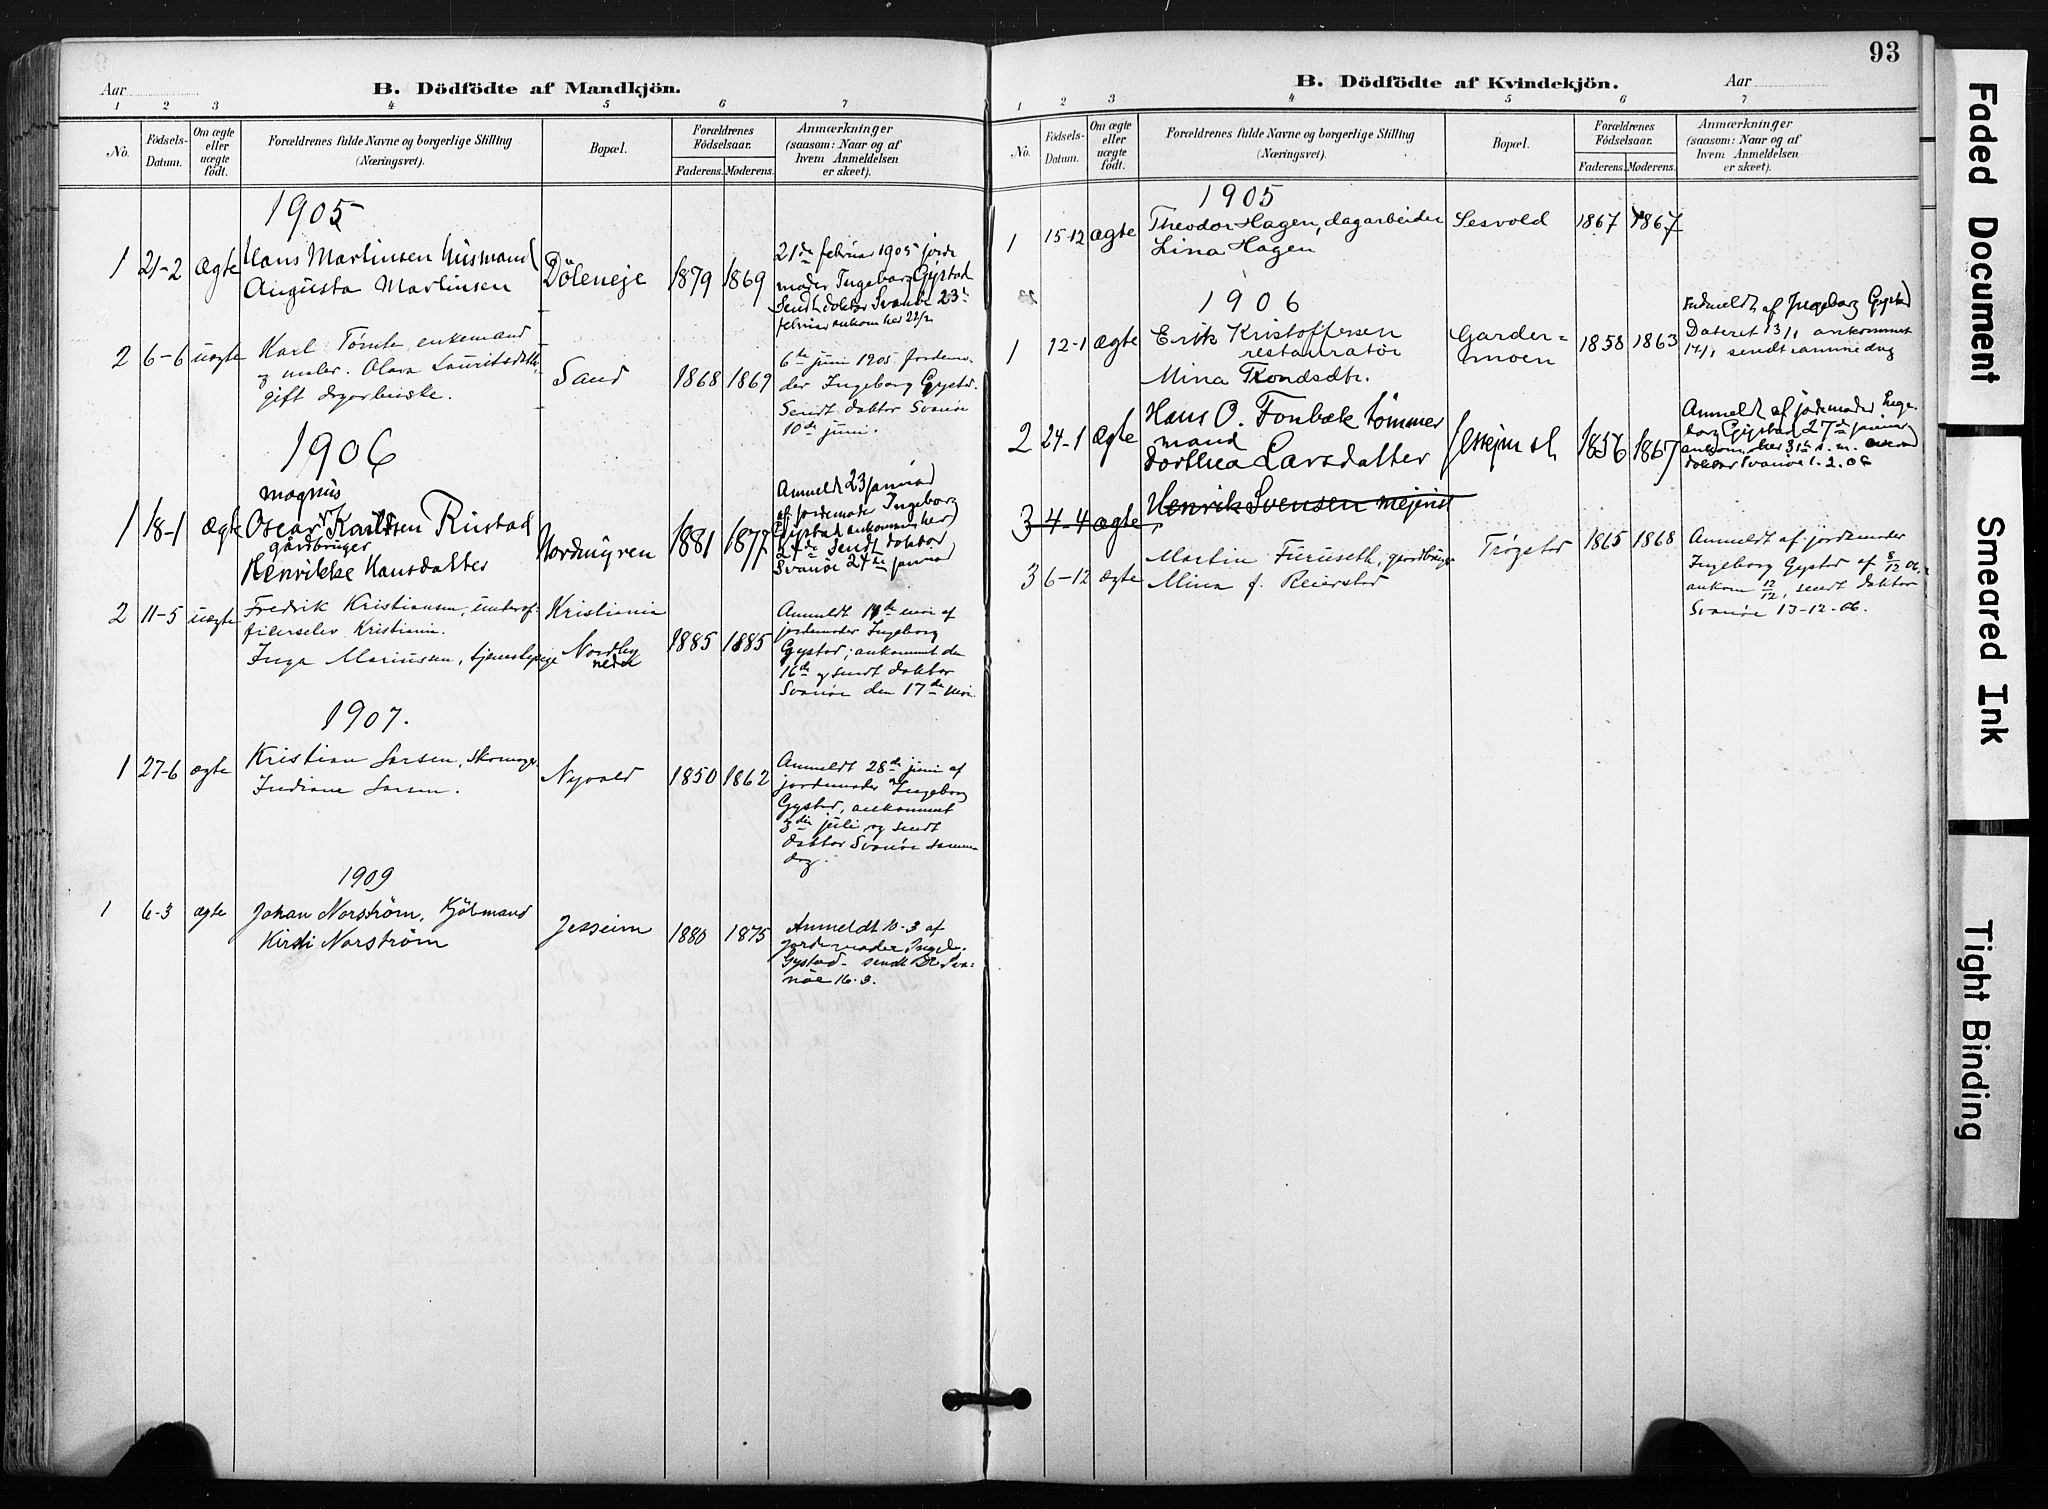 93
Aar
B. Dödfödte af Mandkjön.
1 2 3 4 5 6 7
No.
Födsels-
Datum.
Om ægte
eller
uægte
födt.
Forældrenes fulde Navne og borgerlige Stilling
(Næringsvei).
Bopæl.
Forældrenes
Födselsaar.
Faderens. Moderens.
Anmærkninger
(saasom: Naar og af
hvem Anmeldelsen
er skeet).
1905
1 21-2 Ægte Hans Martinsen husmand
Augusta Martinsen
Döleneje 1879 1869
21de februar 1905 jorde
moder Ingeborg Gystad
Sendt doktor Svanöe 23
februar ankom her 22/2
2 6-6 uægte Karl Tömte, enkemand
og maler. Olava Lauritsdtr,
gift
Sand 1868 1869
6te juni 1905 Jordemo-
der Ingeborg Gystad.
Sendt doktor Svanöe
10de juni.
1906
1 18-1 Ægte
magnus
Oscar Karlsen Rustad
gårdbruger
Henrikke Hansdatter
Nordmyren 1881 1877
Anmeldt 23 januar
af jordemoder Ingeborg
Gystad ankommer her
24de Sendt doktor
Svanöe 24de januar
2 11-5 uægte Fredrik Kristiansen, underof-
ficerselev, Kristiania.
Inga Mariussen, tjenestepige
Kristiania
Nordby
nedre
1885 1885
Anmeldt mai af
jordemoder Ingeborg
Gystad, ankommet den
16de og sendt doktor
Svanöe den 17de mai.
1907.
1 27-6 ægte Kristian Larsen, skomager
Indiane Larsen.
Nyvold 1850 1862
Anmeldt 28de juni af
jordemoder Ingeborg
Gystad, ankommet
3die juli og sendt
doktor Svanöe samme
dag.
1909
1 6-3 ægte Johan Norström, Kjöbmand
Kirsti Norström
Jesseim 1880 1875
Anmeldt 10-3 af
Jordemoder Ingeb.
Gystad - sendt Dr Sva-
nöe 16-3.
B. Dödfödte af Kvindekjön.
Aar
1 2 3 4 5 6 7
No.
Födsels-
Datum.
Om ægte
eller
uægte
födt.
Forældrenes fulde Navne og borgerlige Stilling
(Næringsvei).
Bopæl.
Forældrenes
Födselsaar.
Faderens. Moderens.
Anmærkninger
(saasom: Naar og af
hvem Anmeldelsen
er skeet).
1905
1 15-12 Ægte Theodor Hagen, dagarbeider
Lina Hagen
Sesvold 1867 1867
1906
1 12-1 Ægte Erik Kristoffersen
restauratör
Mina Trondsdtr.
Garder-
moen
1858 1863
Indmeldt af Ingeborg Gystad
Dateret 13/1 ankommet
14/1 sendt samme dag
2 24-1 Ægte Hans O. Fonbæk tömmer
mand
Dorthea Larsdatter
Jessejm st 1856 1867
Anmeldt af jordemoder Inge-
borg Gystad 27de januar
ankom. her 31te
doktor Svanöe 1-2.06
3 4-4 Ægte Henrik Svensen mejerist
3 6-12 ægte Martin Furuseth, gardbruger
Mina f. Reierstad
Trögstad 1865 1868
Anmeldt af jordemoder
Ingeborg Gystad af 8/12 06,
ankom 12/12, sendt doktor
Svanöe 13-12-06.
Faded Document
Smeared Ink
Tight Binding